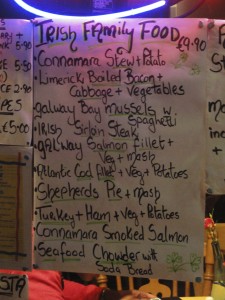 Irish Family Food
£9.90
Connamara Stew + Potato
• Limerick Boiled Bacon +
Cabbage + Vegetables
• galway Bay mussels w.
Spaghetti
• Irish Sirloin Steak
• galway Salmon fillet +
Veg + mash
• Atlantic Cod fillet + Veg + Potatoes
• Shepherds Pie + mash
• Turkey + Ham + Veg + Potatoes
• Connamara Smoked Salmon
• Seafood Chowder with
Soda Bread
5.90
2.90
£5.00
STA